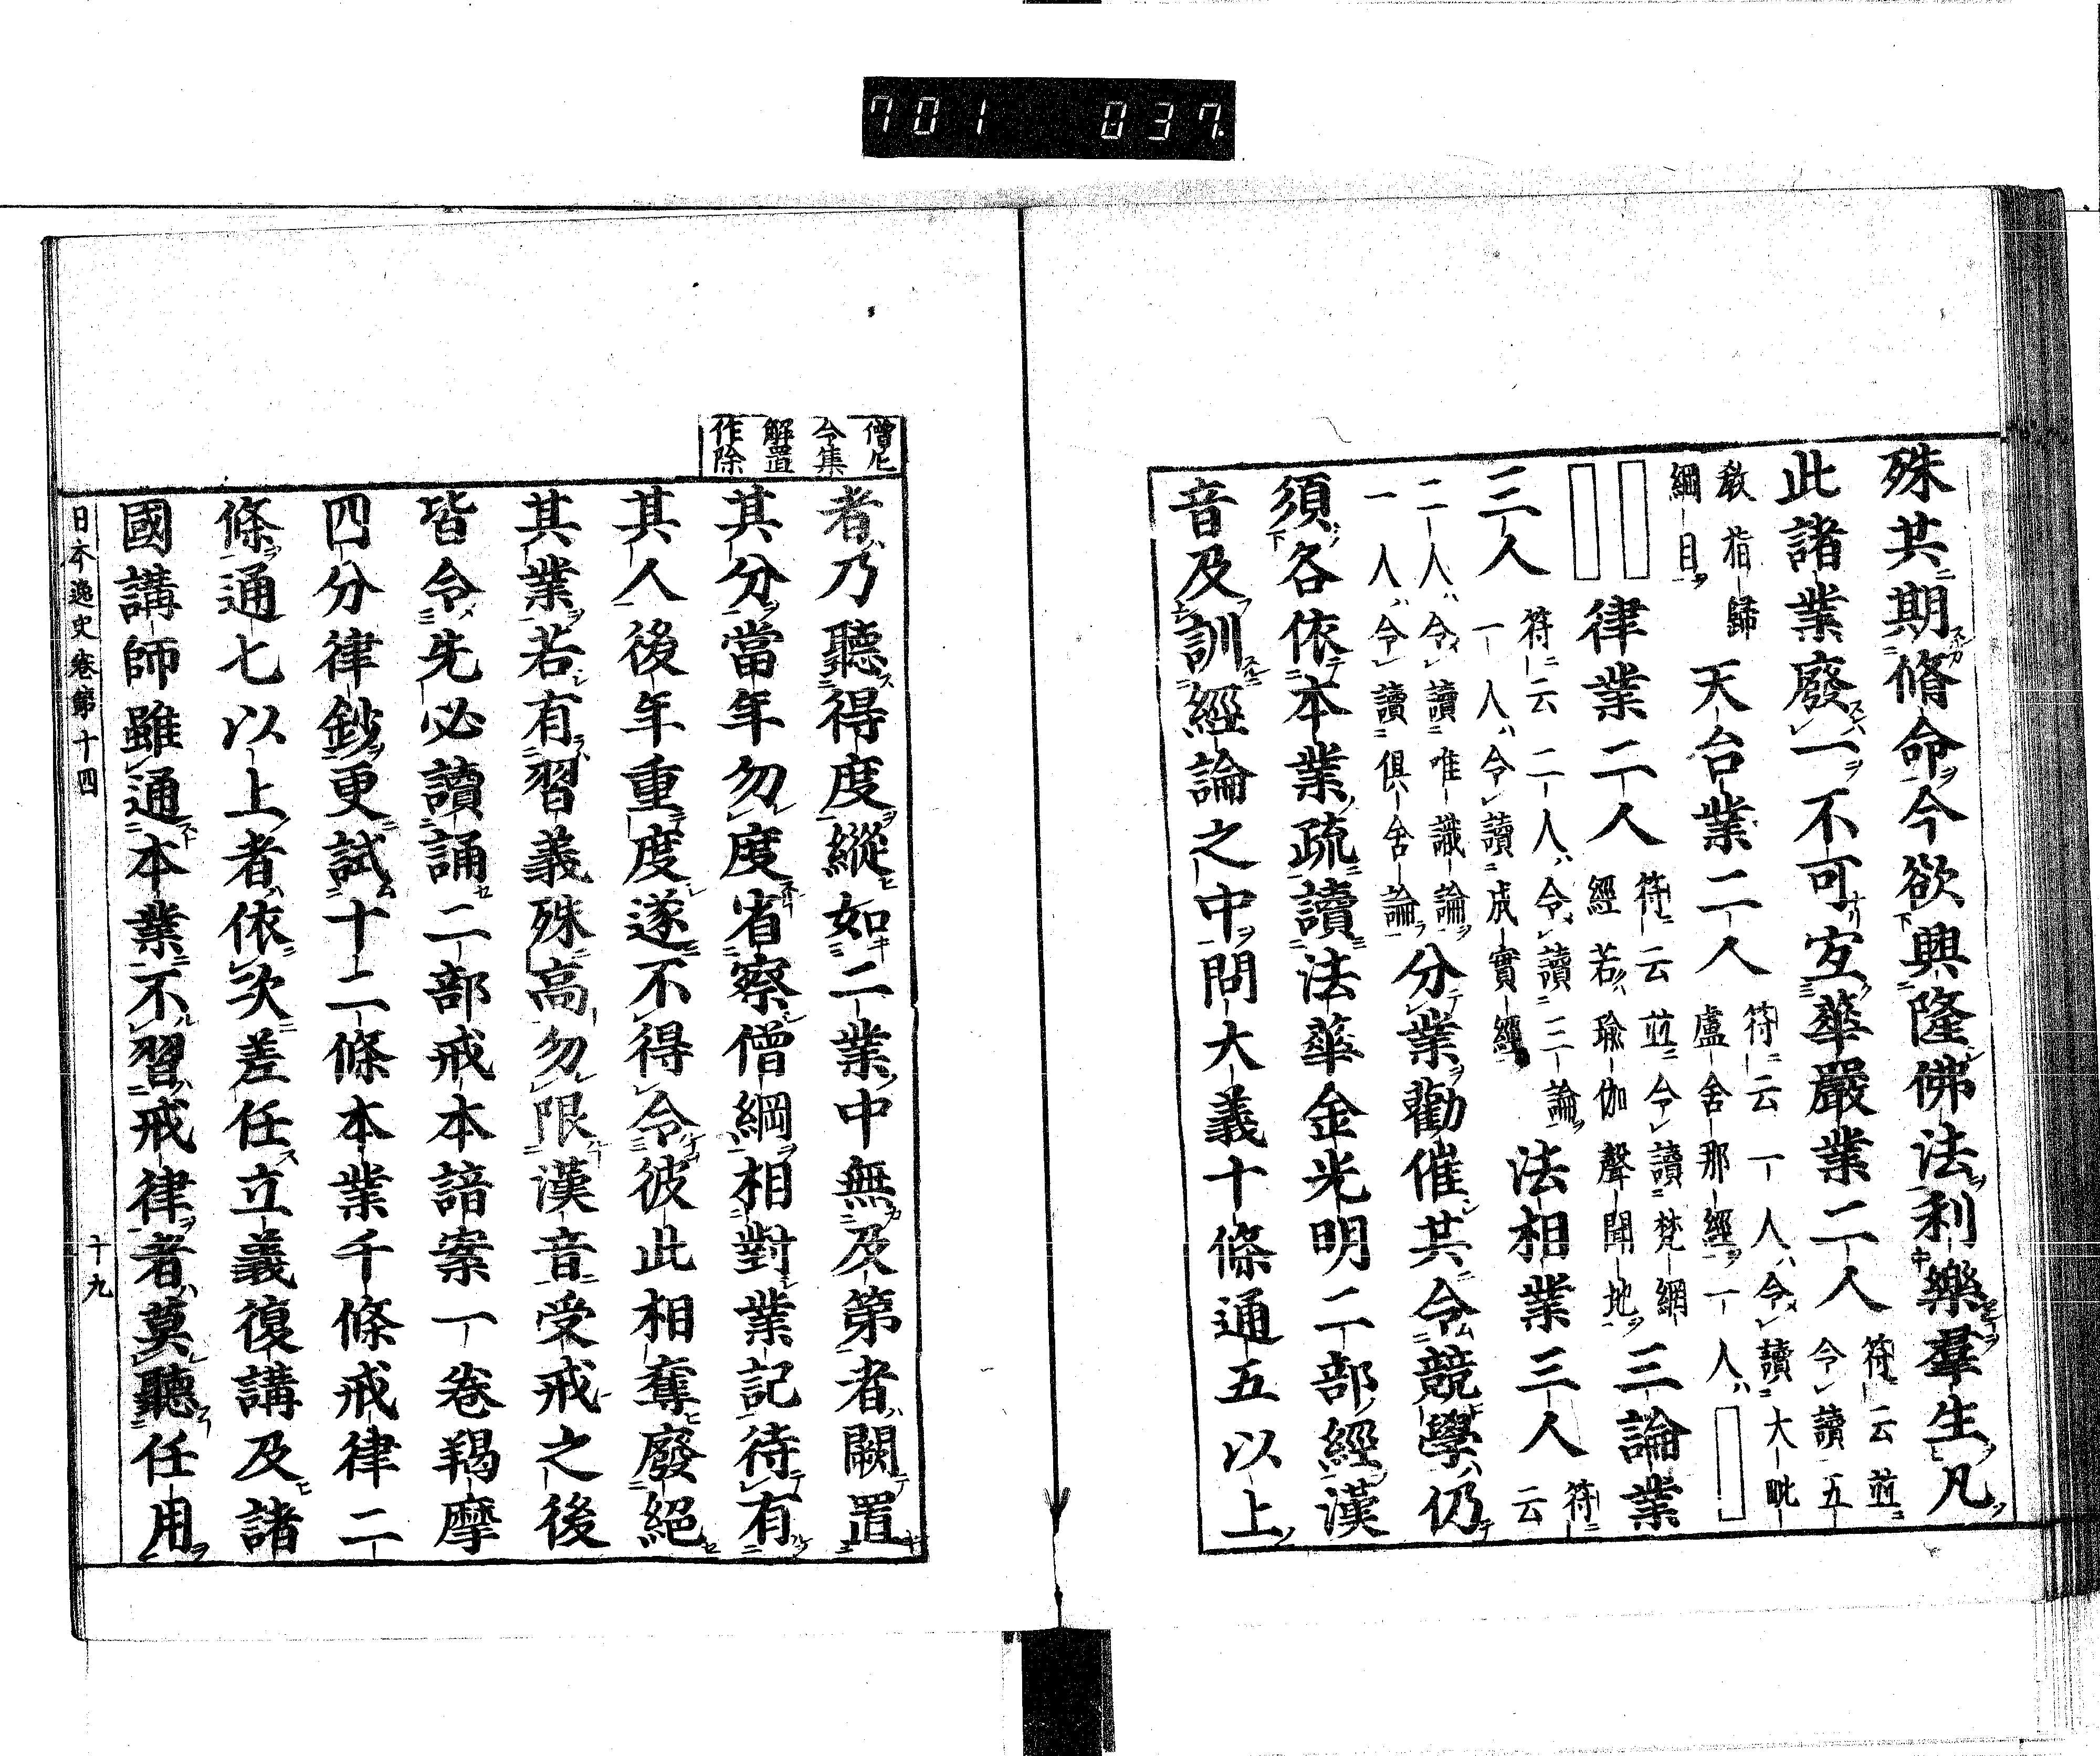 701 037
殊其期脩命今欲興隆佛法利樂羣生凡
此諸業廢一不可宐華嚴業二人符云並令讀五
教指歸綱目天台業二人符云一人令讀大毗盧舍那經一人
律業二人符云並令讀梵網經若瑜伽聲聞地三論業
三人符云二人令讀三論一人令讀成實經法相業三人符云
二人令讀唯識論一人令讀俱舍論分業勸催共令競學仍
須各依本業疏讀法華金光明二部經漢
音及訓經論之中問大義十條通五以上
僧尼
令集
解置
作除
者乃聽得度縱如二業中無及第者闕置
其分當年勿度省察僧綱相對業記待有
其人後年重度遂不得令彼此相奪廢絕
其業若有習義殊高勿限漢音受戒之後
皆令先必讀誦二部戒本諳案一卷羯摩
四分律鈔更試十二條本業十條戒律二
條通七以上者依次差任立義復講及諸
國講師雖通本業不習戒律者莫聽任用
日本逸史卷第十四 十九